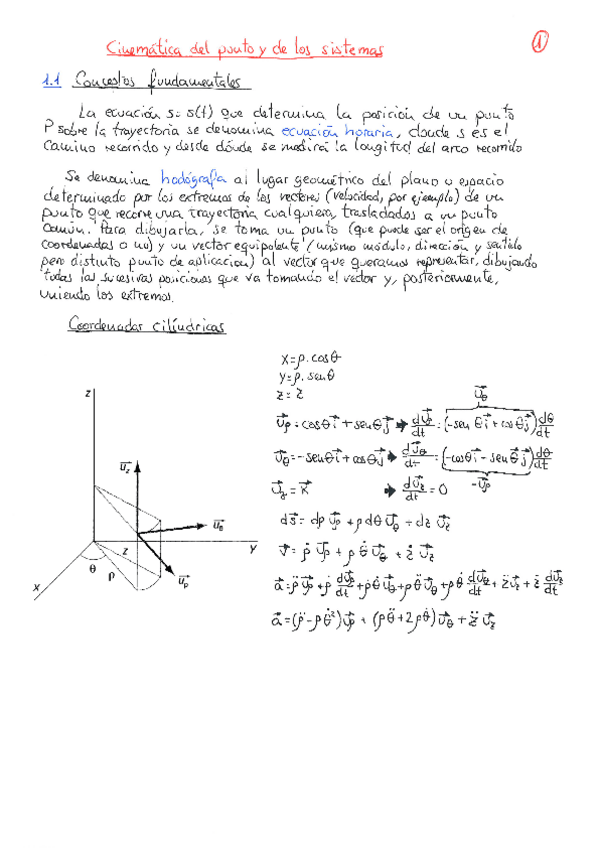 1
Cinemática del punto y de los sistemas
1.1 Conceptos fundamentales
La ecuación s=s(t) que determina la posición de un punto
P sobre la trayectoria se denomina ecuación horaria, donde s es el
camino recorrido y desde dónde se medirá la longitud del arco recorrido
Se denomina hodógrafa al lugar geométrico del plano o espacio
determinado por los extremos de los vectores (velocidad, por ejemplo) de un
punto que recorre una trayectoria cualquiera, trasladados a un punto
común. Para dibujarla, se toma un punto (que puede ser el origen de
coordenadas o no) y un vector equipolente (mismo módulo, dirección y sentido
pero distinto punto de aplicación) al vector que queramos representar, dibujando
todas las sucesivas posiciones que va tomando el vector y, posteriormente,
uniendo los extremos.
Coordenadas cilíndricas
x=ρ.cosθ
y=ρ.senθ
z=z
u⃗ρ=cosθi⃗+senθj⃗ ➔ du⃗ρ/dt=(-senθi⃗+cosθj⃗)dθ/dt
u⃗θ
u⃗θ=-senθi⃗+cosθj⃗ ➔ du⃗θ/dt=(-cosθi⃗-senθj⃗)dθ/dt
-u⃗ρ
u⃗z=k⃗ ➔ du⃗z/dt=0
ds⃗=dρu⃗ρ+ρdθu⃗θ+dzu⃗z
v⃗=ρ̇u⃗ρ+ρθ̇u⃗θ+żu⃗z
a⃗=ρ̈u⃗ρ+ρ̇du⃗ρ/dt+ρ̇θ̇u⃗θ+ρθ̈u⃗θ+ρθ̇du⃗θ/dt+z̈u⃗z+żdu⃗z/dt
a⃗=(ρ̈-ρθ̇²)u⃗ρ+(ρθ̈+2ρ̇θ̇)u⃗θ+z̈u⃗z
z
u⃗z
u⃗θ
z
y
θ
ρ
u⃗ρ
x